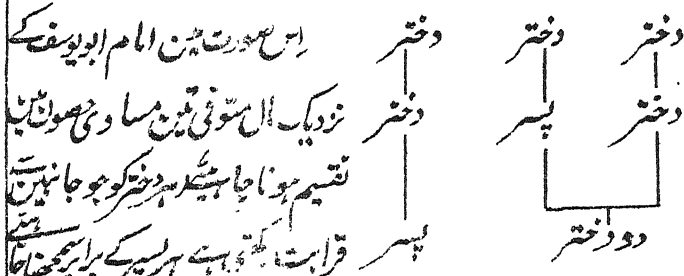 دختر دختر دختر اِس صورت مین امام ابویوسف کے
دختر پسر دختر نزدیک مال متوفی تین مساوی حصون مین
تقسیم ہونا چاہیئے ہر دختر کو جو جانبین سے
دو دختر پسر قرابت رکھتی ہے ہر پسر کے برابر سمجھنا چاہئے